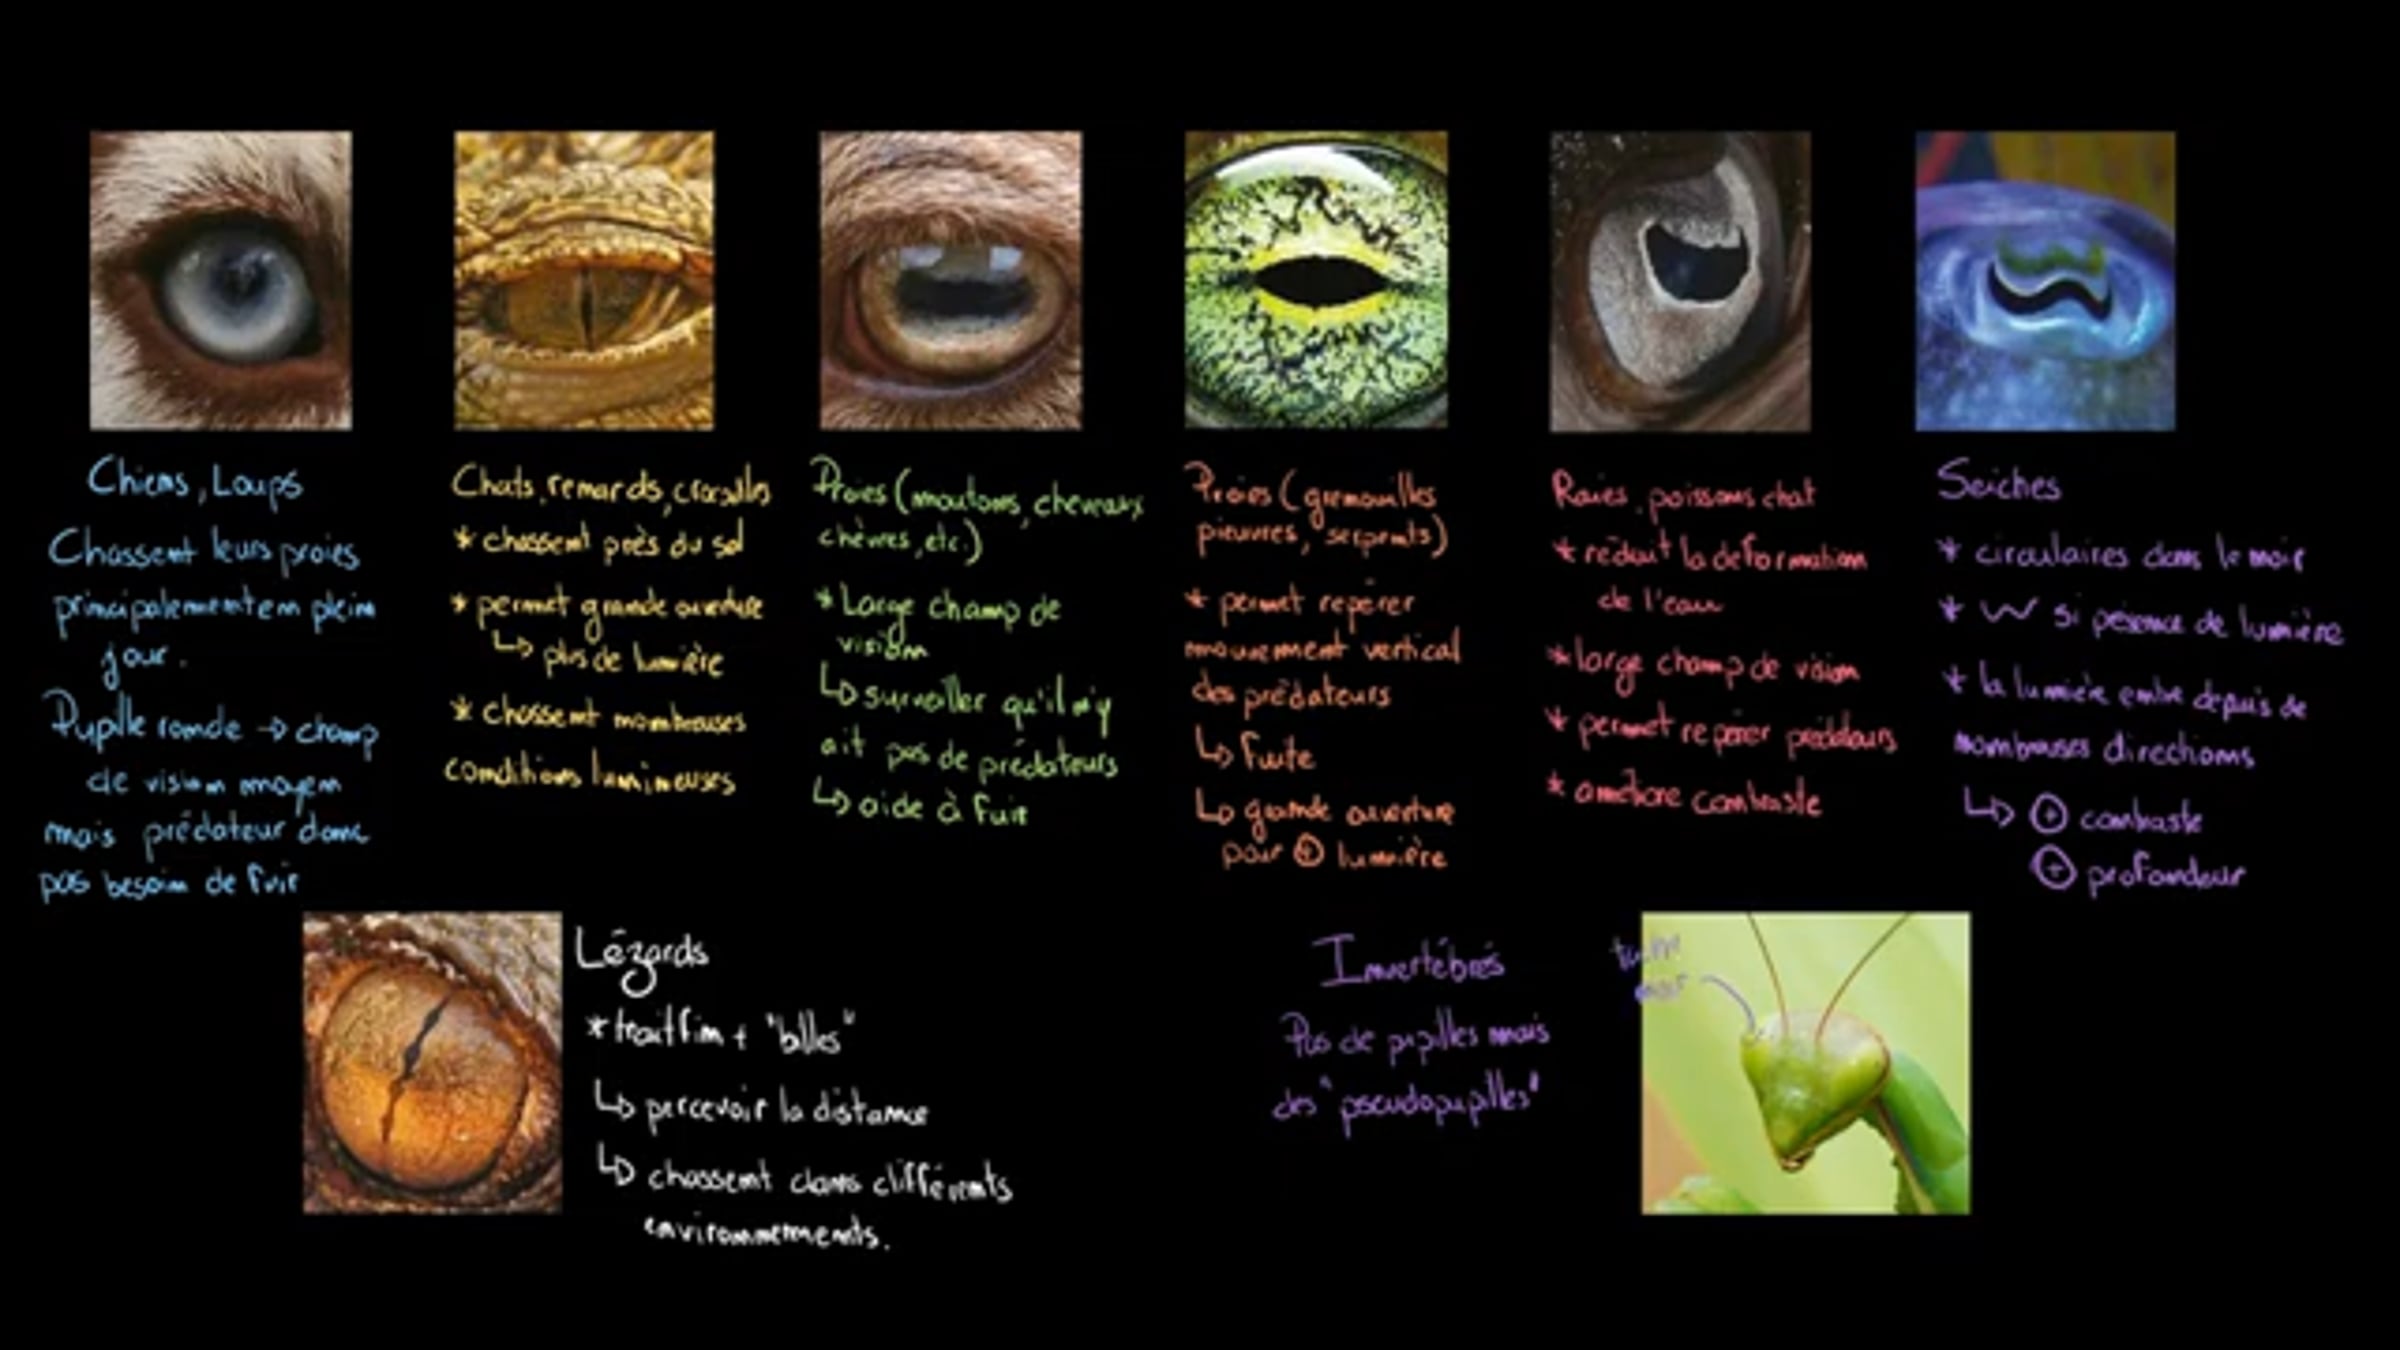 Chiens, Loups
Chassent leurs proies
principalement en plein
jour.
Pupille ronde → champ
de vision moyen
mais prédateur donc
pas besoin de fuir
Chats, renards, crocodiles
* chassent près du sol
* permet grande ouverture
↳ plus de lumière
* chassent nombreuses
conditions lumineuses
Proies (moutons, chevaux
chèvres, etc.)
* Large champ de
vision
↳ surveiller qu'il n'y
ait pas de prédateurs
↳ aide à fuir
Proies (grenouilles
pieuvres, serpents)
* permet repérer
mouvement vertical
des prédateurs
↳ fuite
↳ grande ouverture
pour ⊕ lumière
Raies, poissons chat
* réduit la déformation
de l'eau
* large champ de vision
* permet repérer prédateurs
* améliore contraste
Seiches
* circulaires dans le noir
* W si présence de lumière
* la lumière entre depuis de
nombreuses directions
↳ ⊕ contraste
⊕ profondeur
Lézards
* trait fin + "billes"
↳ percevoir la distance
↳ chassent dans différents
environnements.
Invertébrés
Pas de pupilles mais
des "pseudopupilles"